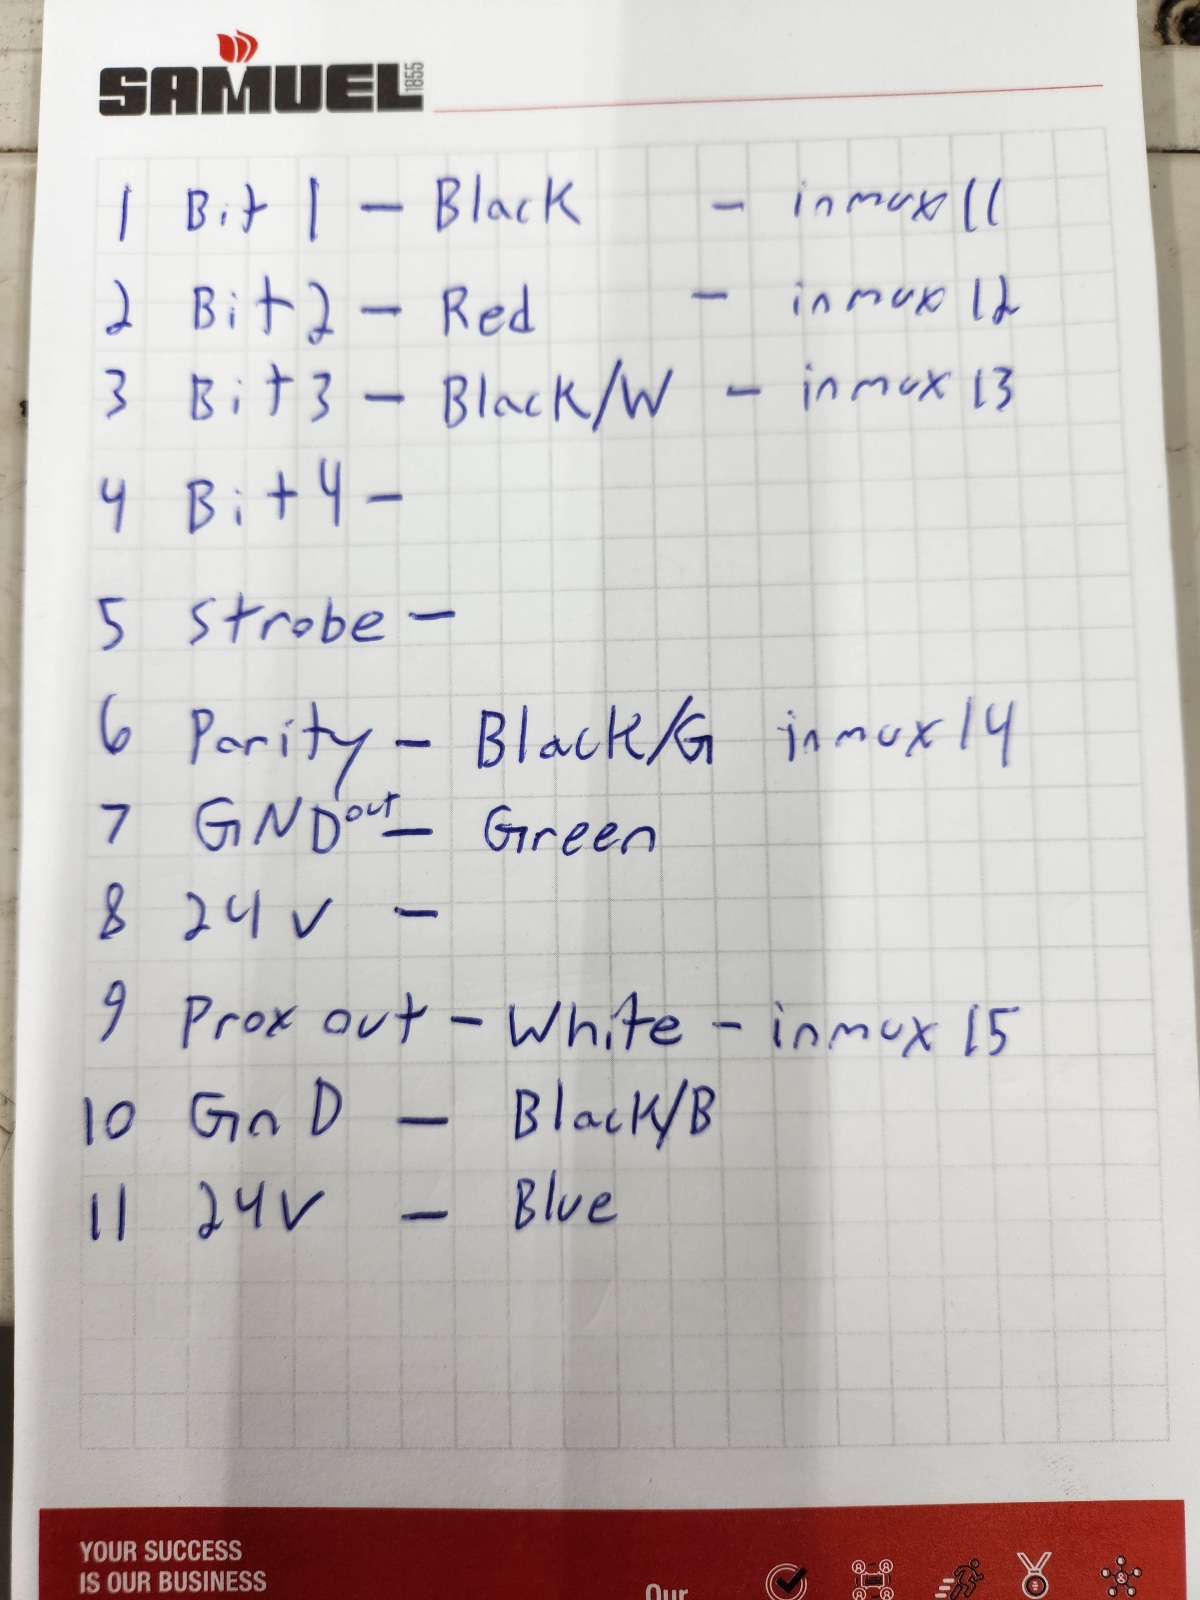 SAMUEL 1855
1 Bit 1 - Black - inmux 11
2 Bit 2 - Red - inmux 12
3 Bit 3 - Black/W - inmux 13
4 Bit 4 -
5 Strobe -
6 Parity - Black/G inmux 14
7 GND out - Green
8 24V -
9 Prox out - White - inmux 15
10 GnD - Black/B
11 24V - Blue
YOUR SUCCESS
IS OUR BUSINESS
Our